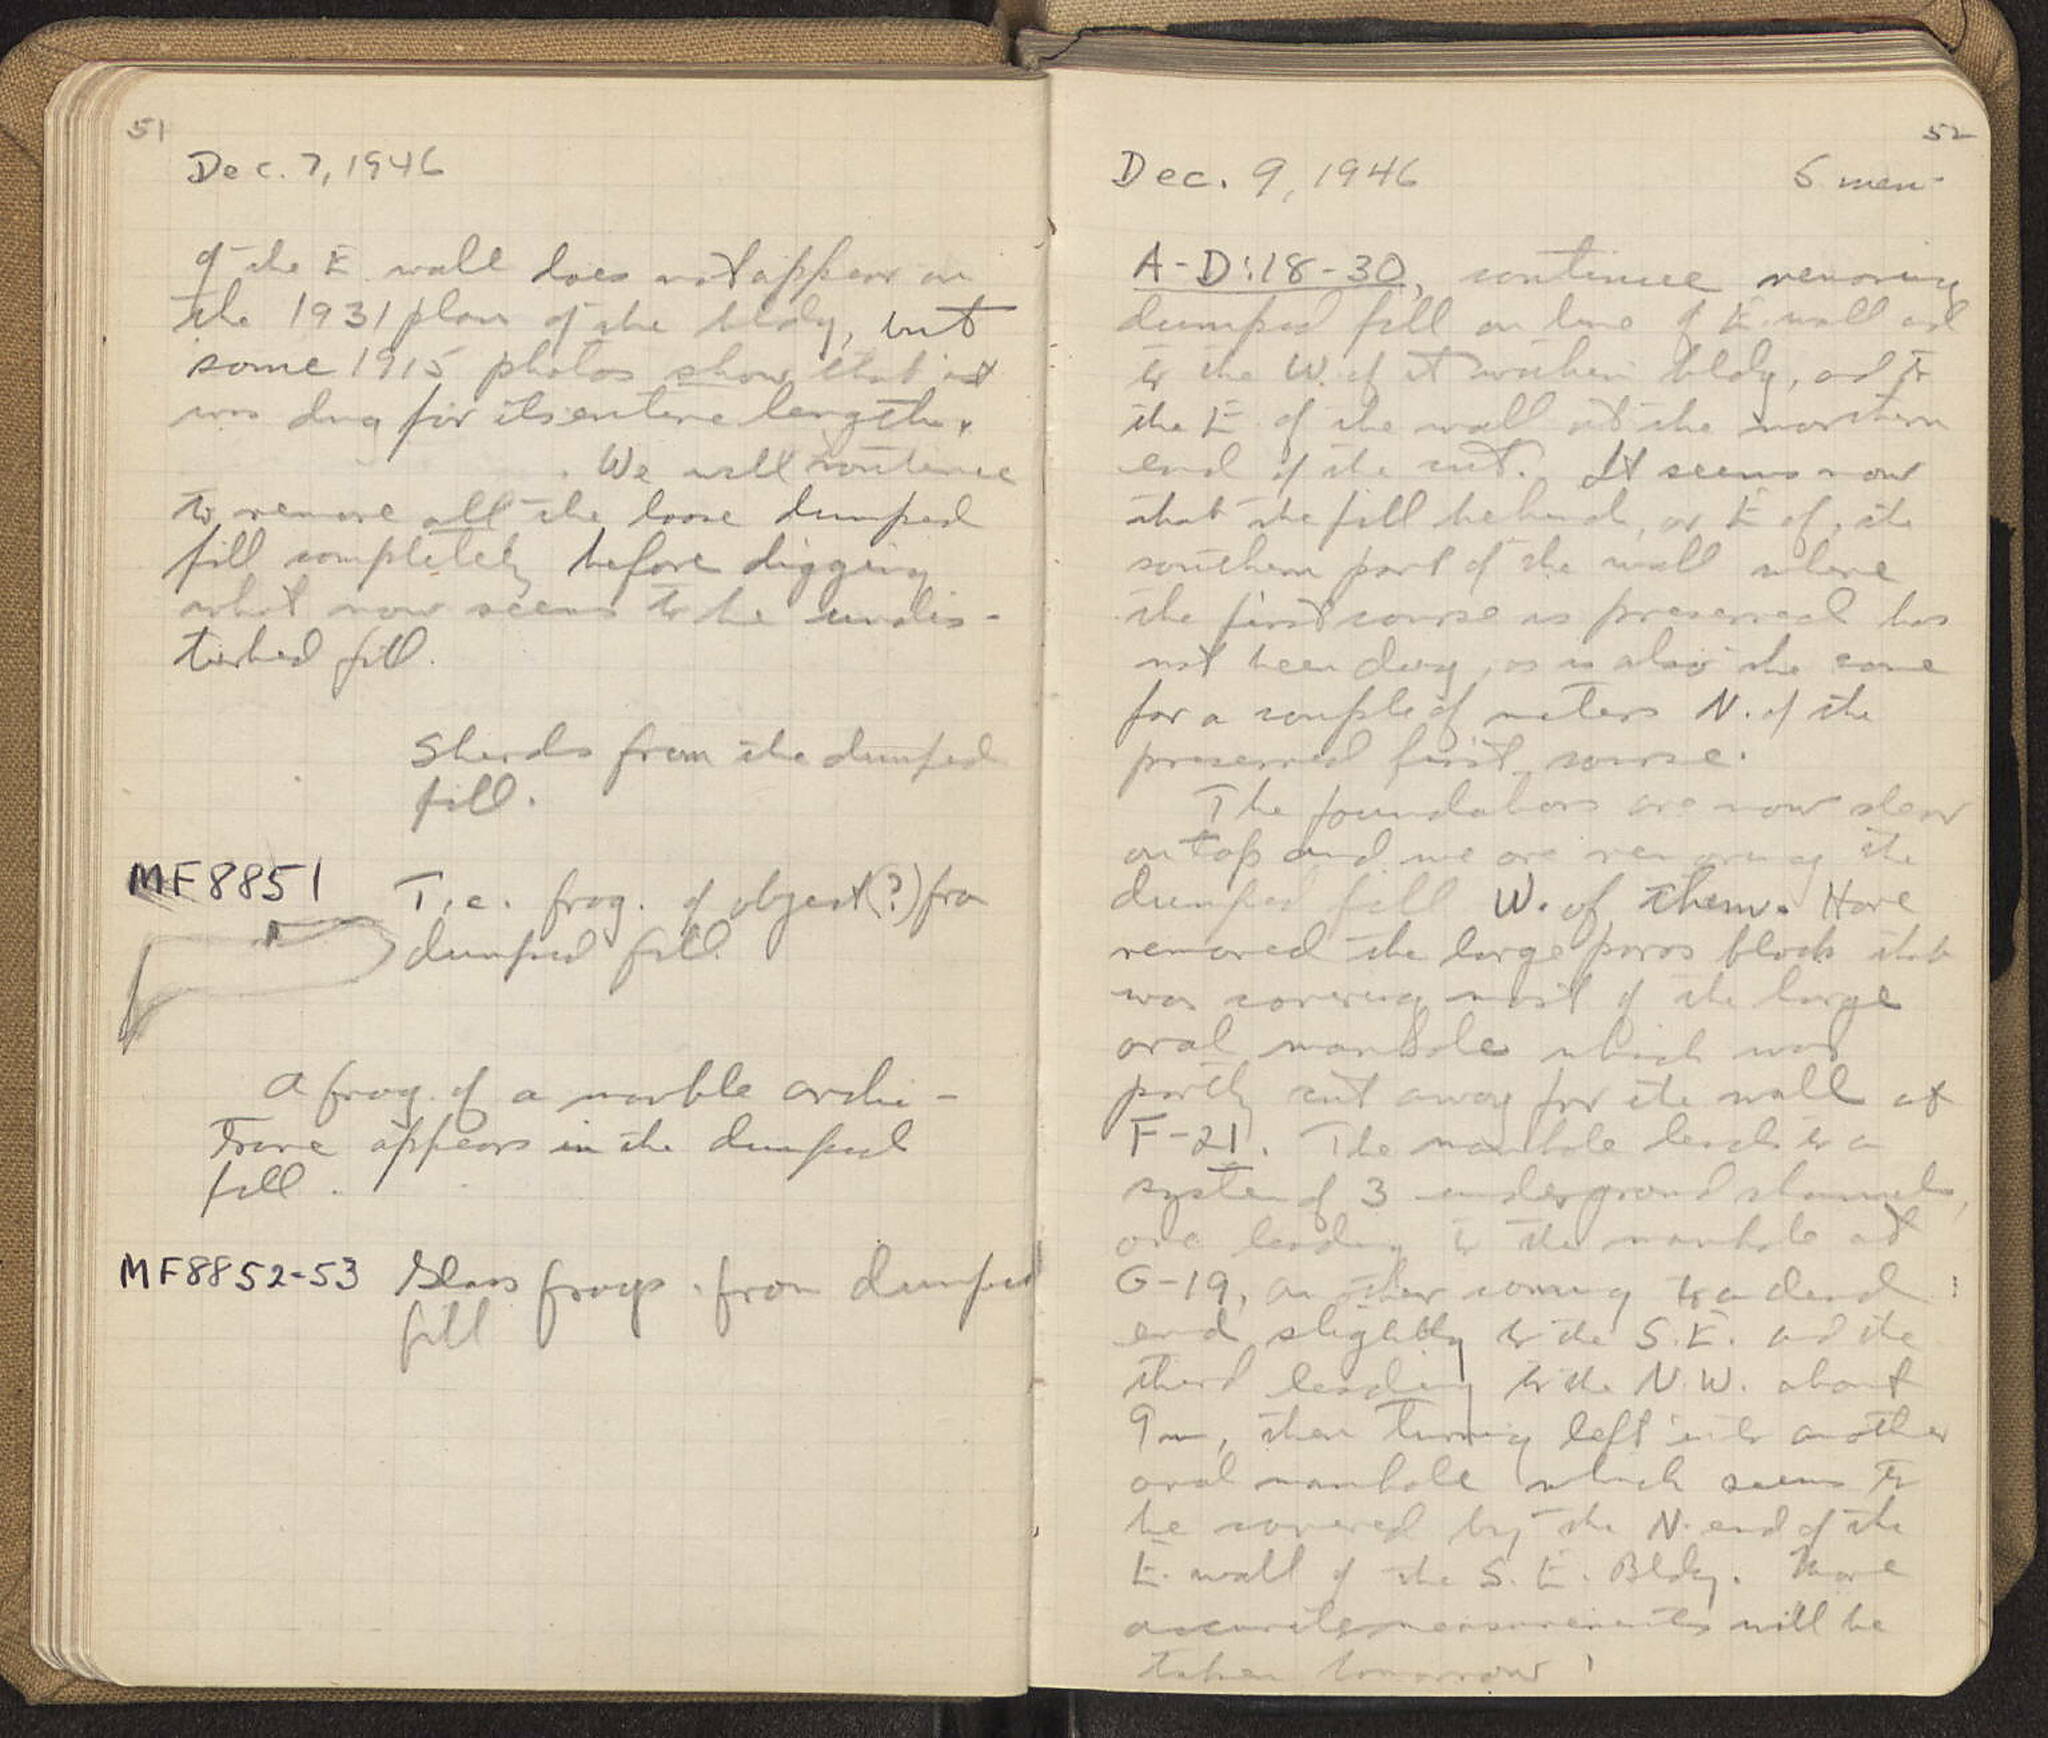 51
Dec. 7, 1946
of the E. wall does not appear on
the 1931 plan of the bldg, but
some 1915 photos show that it
was dug for its entire length.
We will continue
to remove all the loose dumped
fill completely before digging
what now seems to be undis-
turbed fill.
Sherds from the dumped
fill.
MF8851
T.c. frag. of object (?) fro
dumped fill
A frag. of a marble archi-
trave appears in the dumped
fill.
MF8852-53 Glass frags. from dumped
fill
52
Dec. 9, 1946 5 men
A-D:18-30, continue removing
dumped fill on line of E. wall and
to the W. of it within bldg, and to
the E. of the wall at the northern
end of the cut. It seems now
that the fill behind, or E of, the
southern part of the wall where
the first course is preserved has
not been dug, as is also the case
for a couple of meters N. of the
preserved first course.
The foundations are now clear
on top and we are removing the
dumped fill W. of them. Have
removed the large poros block that
was covering most of the large
oval manhole which was
partly cut away for the wall at
F-21. The manhole leads to a
system of 3 underground channels,
one leading to the manhole at
G-19, another coming to a dead
end slightly to the S.E. and the
third leading to the N.W. about
9m, then turning left into another
oval manhole which seems to
be covered by the N. end of the
E. wall of the S.E. Bldg. More
accurate measurements will be
taken tomorrow